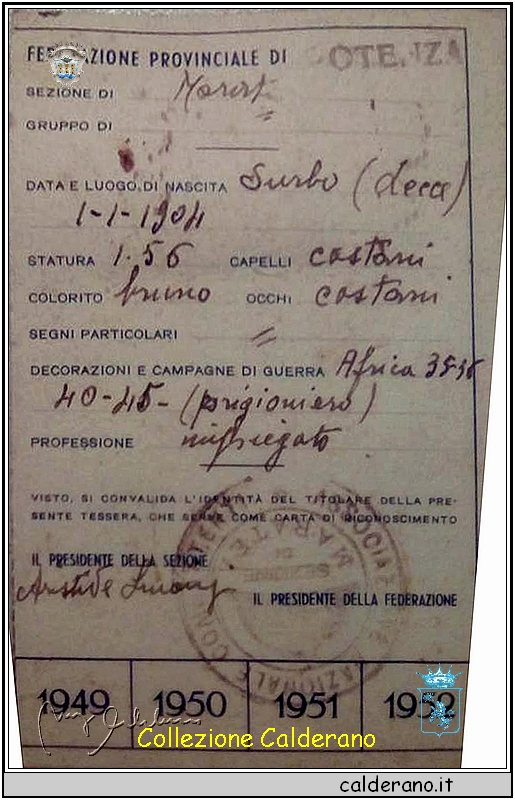 FEDERAZIONE PROVINCIALE DI POTENZA
SEZIONE DI
GRUPPO DI
DATA E LUOGO DI NASCITA Surbo (Lecce)
1-1-1904
STATURA 1.56 CAPELLI castani
COLORITO bruno OCCHI castani
SEGNI PARTICOLARI
DECORAZIONI E CAMPAGNE DI GUERRA Africa 35-36
40-45-(prigioniero)
PROFESSIONE impiegato
VISTO, SI CONVALIDA L'IDENTITÀ DEL TITOLARE DELLA PRE-
SENTE TESSERA, CHE SERVE COME CARTA DI RICONOSCIMENTO
IL PRESIDENTE DELLA SEZIONE
IL PRESIDENTE DELLA FEDERAZIONE
SEZIONE DI MARATEA
1949 1950 1951 1952
Collezione Calderano
calderano.it